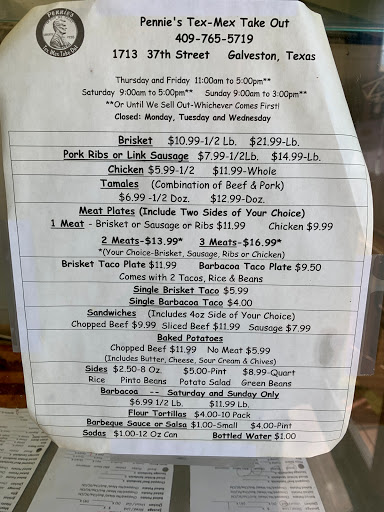 PENNIE'S
Tex Mex Take Out
Pennie's Tex-Mex Take Out
409-765-5719
1713 37th Street Galveston, Texas
Thursday and Friday 11:00am to 5:00pm**
Saturday 9:00am to 5:00pm** Sunday 9:00am to 3:00pm**
**Or Until We Sell Out-Whichever Comes First!
Closed: Monday, Tuesday and Wednesday
Brisket $10.99-1/2 Lb. $21.99-Lb.
Pork Ribs or Link Sausage $7.99-1/2Lb. $14.99-Lb.
Chicken $5.99-1/2 $11.99-Whole
Tamales (Combination of Beef & Pork)
$6.99 -1/2 Doz. $12.99-Doz.
Meat Plates (Include Two Sides of Your Choice)
1 Meat - Brisket or Sausage or Ribs $11.99 Chicken $9.99
2 Meats-$13.99* 3 Meats-$16.99*
*(Your Choice-Brisket, Sausage, Ribs or Chicken)
Brisket Taco Plate $11.99 Barbacoa Taco Plate $9.50
Comes with 2 Tacos, Rice & Beans
Single Brisket Taco $5.99
Single Barbacoa Taco $4.00
Sandwiches (Includes 4oz Side of Your Choice)
Chopped Beef $9.99 Sliced Beef $11.99 Sausage $7.99
Baked Potatoes
Chopped Beef $11.99 No Meat $5.99
(Includes Butter, Cheese, Sour Cream & Chives)
Sides $2.50-8 Oz. $5.00-Pint $8.99-Quart
Rice Pinto Beans Potato Salad Green Beans
Barbacoa -- Saturday and Sunday Only
$6.99 1/2 Lb. $11.99 Lb.
Flour Tortillas $4.00-10 Pack
Barbeque Sauce or Salsa $1.00-Small $4.00-Pint
Sodas $1.00-12 Oz Can Bottled Water $1.00